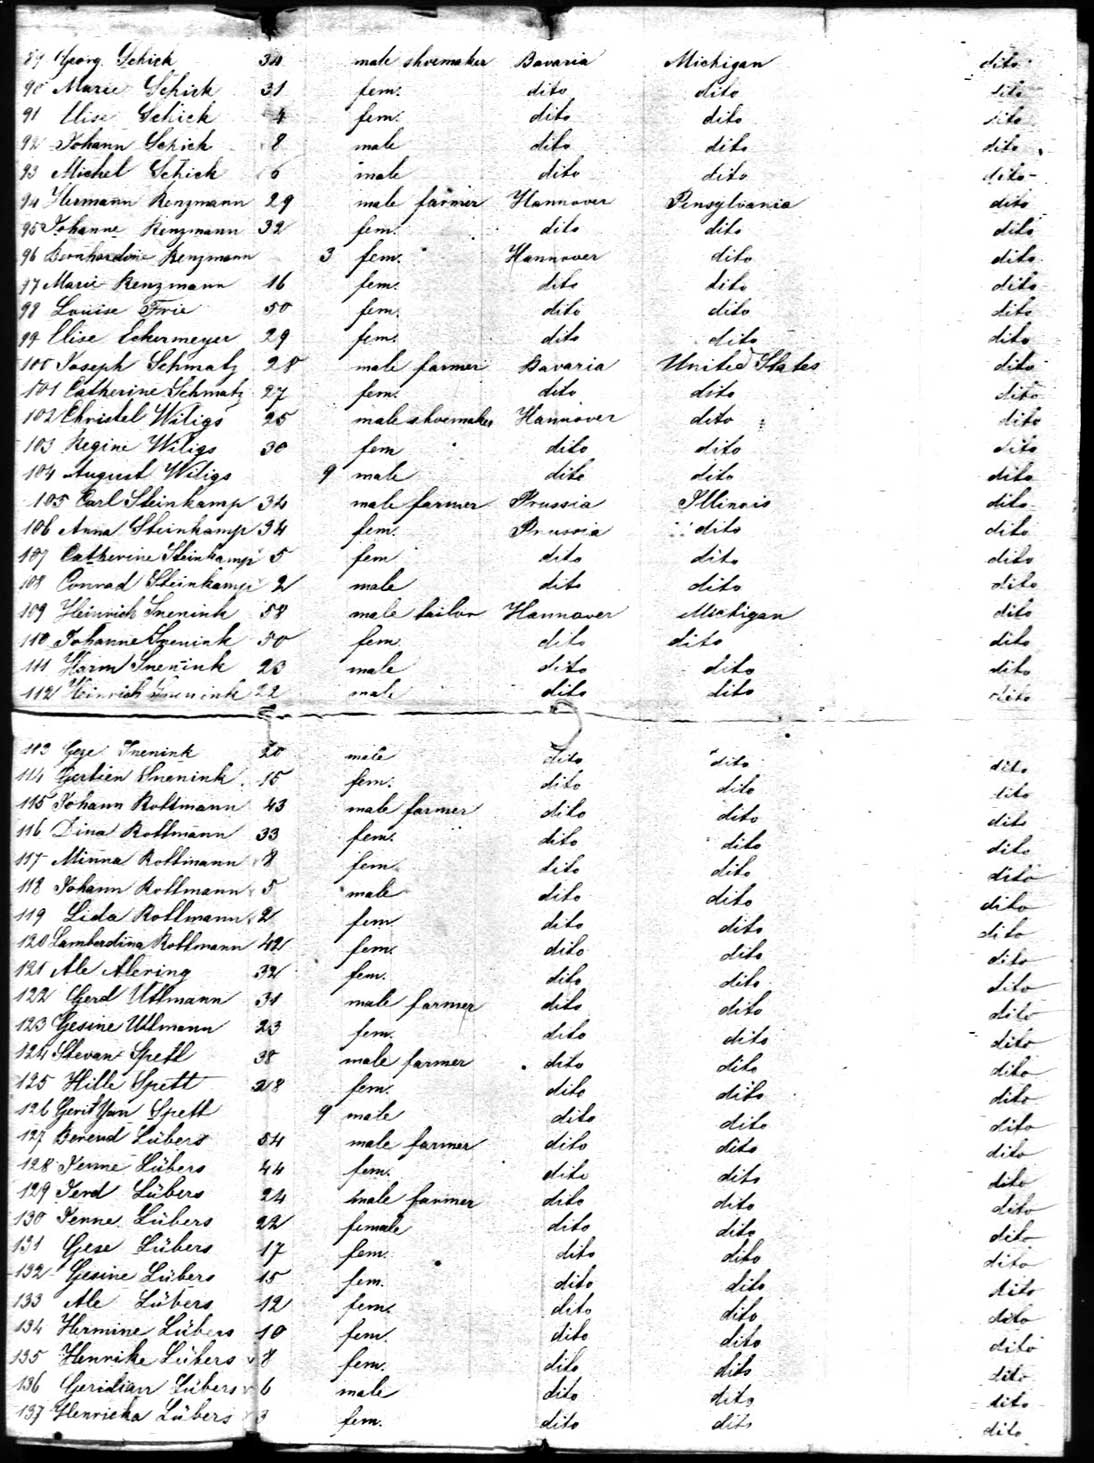 89 Georg Schick 34 male shoemaker Bavaria Michigan dito
90 Marie Schick 31 fem. dito dito dito
91 Elise Schick 4 fem. dito dito dito
92 Johann Schick 8 male dito dito dito
93 Michel Schick 6 male dito dito dito
94 Hermann Renzmann 29 male farmer Hannover Pensylvania dito
95 Johanne Renzmann 32 fem. dito dito dito
96 Bernhardine Renzmann 3 fem. Hannover dito dito
97 Marie Renzmann 16 fem. dito dito dito
98 Louise Frie 50 fem. dito dito dito
99 Elise Echermeyer 29 fem. dito dito dito
100 Joseph Schmatz 28 male farmer Bavaria United States dito
101 Catherine Schmatz 27 fem. dito dito dito
102 Christel Wiligs 25 male shoemaker Hannover dito dito
103 Regine Wiligs 30 fem dito dito dito
104 August Wiligs 9 male dito dito dito
105 Carl Steinkamp 34 male farmer Prussia Illinois dito
106 Anna Steinkamp 34 fem. Prussia dito dito
107 Catherine Steinkamp 5 fem dito dito dito
108 Conrad Steinkamp 2 male dito dito dito
109 Heinrich Snenink 58 male tailor Hannover Michigan dito
110 Johanne Snenink 50 fem. dito dito dito
111 Harm Snenink 23 male dito dito dito
112 Heinrich Snenink 22 male dito dito dito
113 Geze Snenink 20 male dito dito dito
114 Gertien Snenink 15 fem. dito dito dito
115 Johann Rottmann 43 male farmer dito dito dito
116 Dina Rottmann 33 fem. dito dito dito
117 Minna Rottmann 8 fem. dito dito dito
118 Johann Rottmann 5 male dito dito dito
119 Lida Rottmann 2 fem dito dito dito
120 Lamberdina Rottmann 42 fem. dito dito dito
121 Ale Alering 32 fem. dito dito dito
122 Gerd Utlmann 31 male farmer dito dito dito
123 Gesine Utlmann 23 fem. dito dito dito
124 Stevan Spett 38 male farmer dito dito dito
125 Hille Spett 28 fem. dito dito dito
126 Gerit Jan Spett 9 male dito dito dito
127 Berend Lübers 54 male farmer dito dito dito
128 Jenne Lübers 44 fem. dito dito dito
129 Jerd Lübers 24 male farmer dito dito dito
130 Jenne Lübers 22 female dito dito dito
131 Gese Lübers 17 fem. dito dito dito
132 Gesine Lübers 15 fem. dito dito dito
133 Ale Lübers 12 fem. dito dito dito
134 Hermine Lübers 10 fem. dito dito dito
135 Henrike Lübers 8 fem. dito dito dito
136 Geridian Lübers 6 male dito dito dito
137 Henricka Lübers 3 fem. dito dito dito